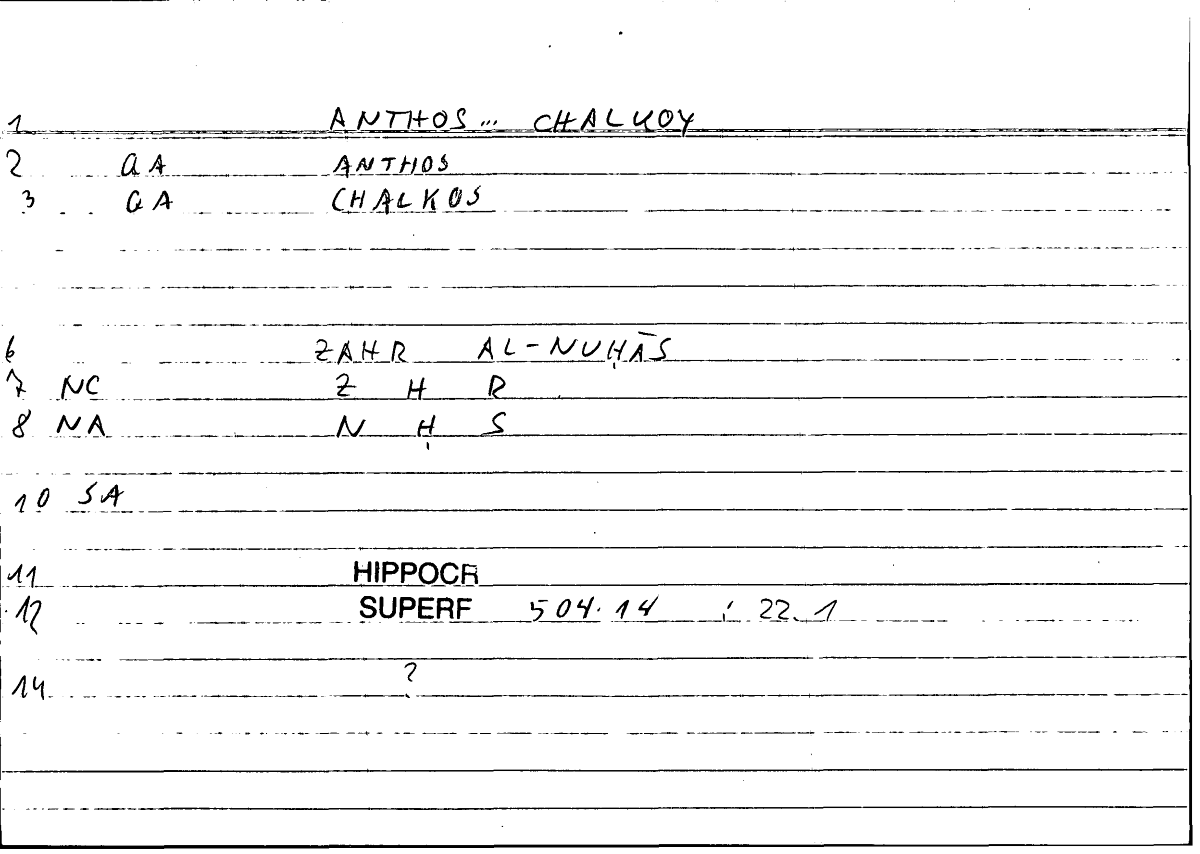 1 ANTHOS... CHALKOY
2 GA ANTHOS
3 GA CHALKOS
6 ZAHR AL-NUḤĀS
7 NC Z H R
8 NA N Ḥ S
10 SA
11 HIPPOCR
12 SUPERF 504.14 ; 22.1
14 ?